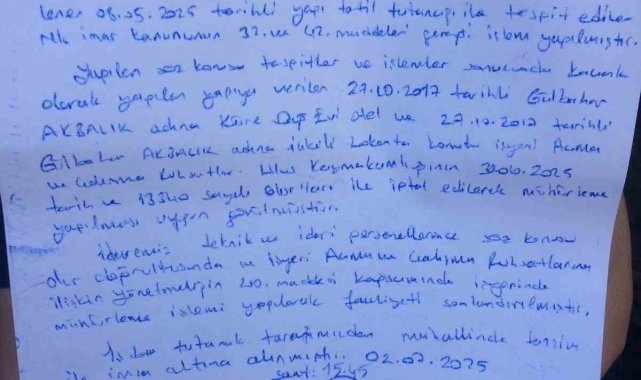 lenen 08.05.2025 tarihli yapı tatil tutanağı ile tespit edilen
Nlk imar kanununun 32. ve 42. maddeleri gereği işlem yapılmıştır.
Yapılan söz konusu tespitler ve işlemler sonucunda kaçak
olarak yapılan yapıya verilen 27.10.2017 tarihli Gülbahar
AKBALIK adına Küre Dağ Evi otel ve 27.12.2017 tarihli
Gülbahar AKBALIK adına içkili Lokanta konulu işyeri Açma
ve Çalışma Ruhsatları. Ulus Kaymakamlığının 30.06.2025
tarih ve 13340 sayılı olurları ile iptal edilerek mühürleme
yapılması uygun görülmüştür.
İdaremiz teknik ve idari personellerince söz konusu
olur doğrultusunda ve işyeri Açma ve Çalışma Ruhsatlarına
ilişkin yönetmeliğin 40. maddesi kapsamında
mühürleme işlemi yapılarak faaliyeti sonlandırılmıştır.
İş bu tutanak tarafımızdan mahallinde tanzim
imza altına alınmıştır. 02.07.2025
saat: 15:45